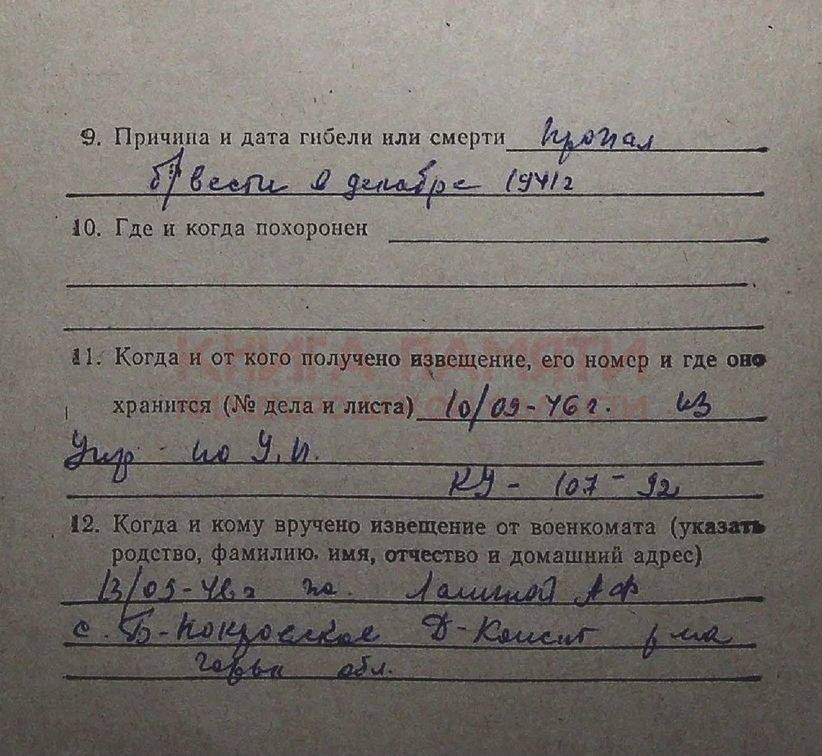 9. Причина и дата гибели или смерти пропал
б/вести в декабре 1941г
10. Где и когда похоронен
11. Когда и от кого получено извещение, его номер и где оно
КНИГА ПАМЯТИ
хранится (№ дела и листа) 10/09-46 г. из
Упр по У.П.
КУ - 107 - 92
12. Когда и кому вручено извещение от военкомата (указать
родство, фамилию, имя, отчество и домашний адрес)
13/09-46 г АФ
с. Б-Покровское Д-Конст р-на
горьк обл.